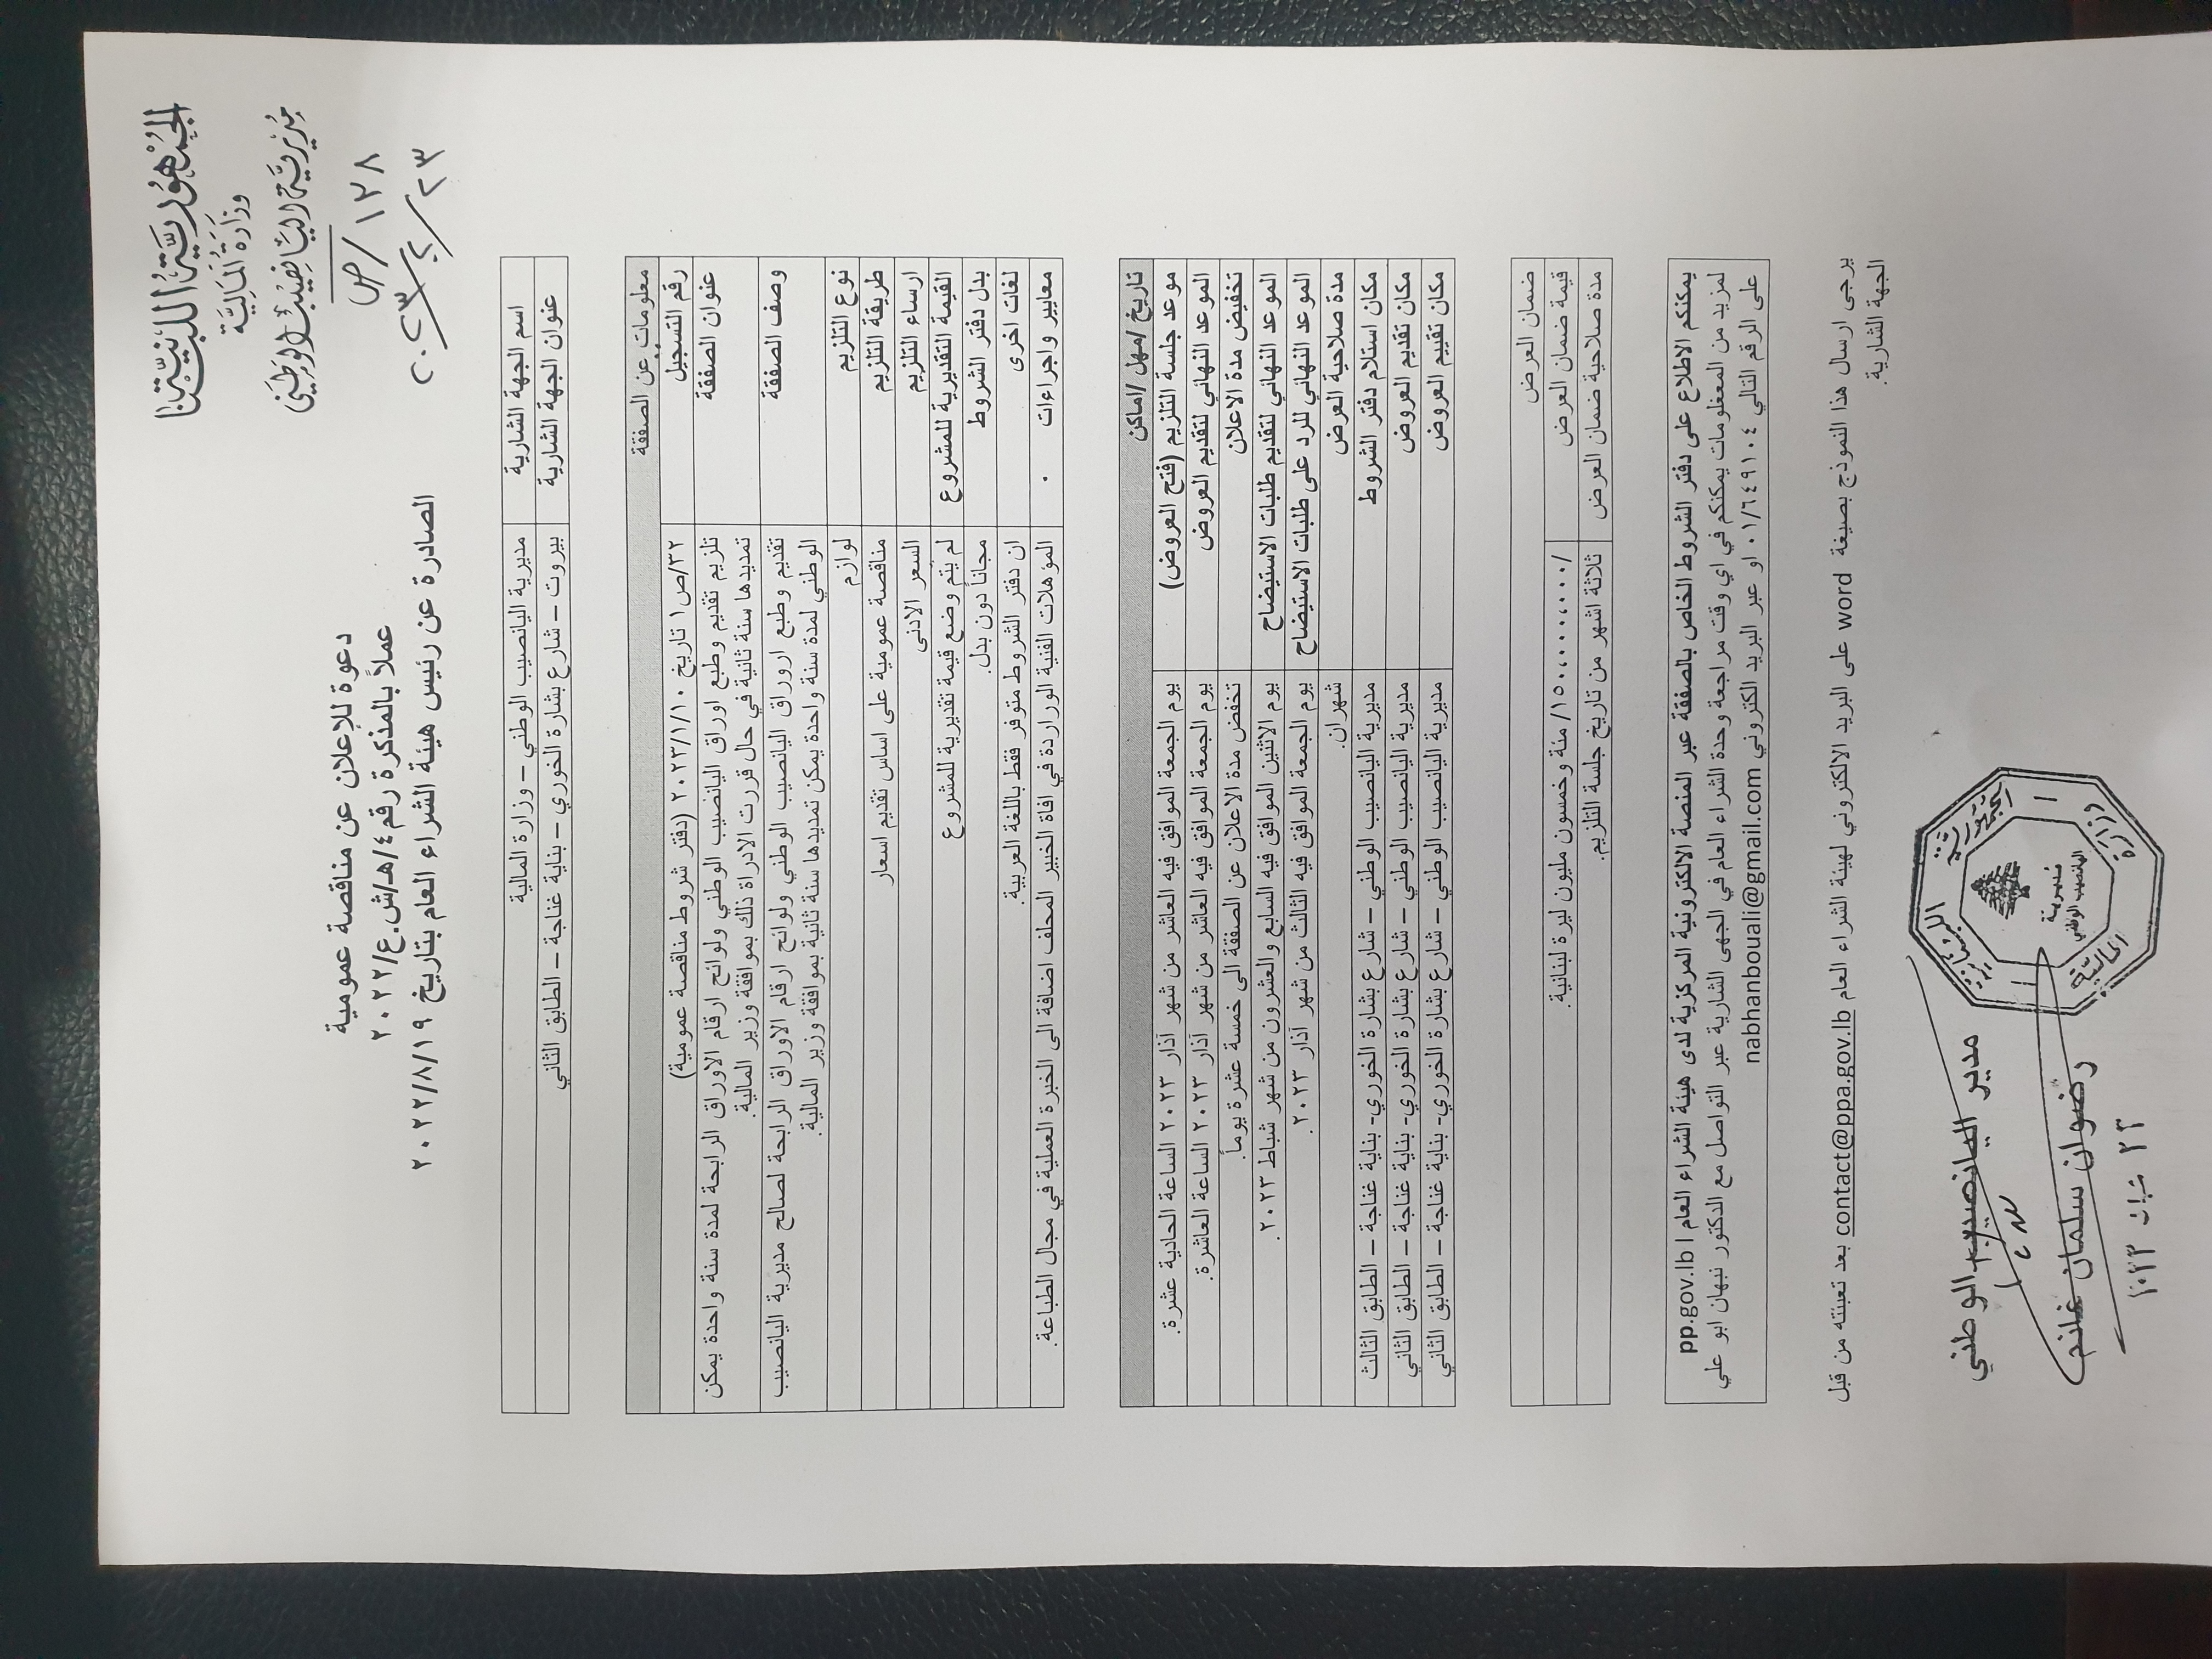 الجمهورية اللبنانية
وزارة المالية
مديرية اليانصيب الوطني
١٢٨/ص
٢٠٢٣/٢/٢٣
دعوة للإعلان عن مناقصة عمومية
عملاً بالمذكرة رقم ٤/هـ/ش.ع/٢٠٢٢
الصادرة عن رئيس هيئة الشراء العام بتاريخ ٢٠٢٢/٨/١٩
اسم الجهة الشارية مديرية اليانصيب الوطني – وزارة المالية
عنوان الجهة الشارية بيروت – شارع بشارة الخوري – بناية غناجة – الطابق الثاني
معلومات عن الصفقة
رقم التسجيل ٣٢/ص١ تاريخ ٢٠٢٣/١/١٠ (دفتر شروط مناقصة عمومية)
عنوان الصفقة تلزيم تقديم وطبع اوراق اليانصيب الوطني ولوائح ارقام الاوراق الرابحة لمدة سنة واحدة يمكن
تمديدها سنة ثانية في حال قررت الادراة ذلك بموافقة وزير المالية.
وصف الصفقة تقديم وطبع اروراق اليانصيب الوطني ولوائح ارقام الاوراق الرابحة لصالح مديرية اليانصيب
الوطني لمدة سنة واحدة يمكن تمديدها سنة ثانية بموافقة وزير المالية.
نوع التلزيم لوازم
طريقة التلزيم مناقصة عمومية على اساس تقديم اسعار
ارساء التلزيم السعر الادنى
القيمة التقديرية للمشروع لم يتم وضع قيمة تقديرية للمشروع
بدل دفتر الشروط مجاناً دون بدل.
لغات اخرى ان دفتر الشروط متوفر فقط باللغة العربية.
معايير واجراءات . المؤهلات الفنية الوراردة في افاة الخبير المحلف اضافة الى الخبرة العملية في مجال الطباعة.
تاريخ /مهل /اماكن
موعد جلسة التلزيم (فتح العروض) يوم الجمعة الموافق فيه العاشر من شهر آذار ٢٠٢٣ الساعة الحادية عشرة.
الموعد النهائي لتقديم العروض يوم الجمعة الموافق فيه العاشر من شهر آذار ٢٠٢٣ الساعة العاشرة.
تخفيض مدة الاعلان تخفض مدة الاعلان عن الصفقة الى خمسة عشرة يوماً.
الموعد النهائي لتقديم طلبات الاستيضاح يوم الاثنين الموافق فيه السابع والعشرون من شهر شباط ٢٠٢٣.
الموعد النهائي للرد على طلبات الاستيضاح يوم الجمعة الموافق فيه الثالث من شهر آذار ٢٠٢٣.
مدة صلاحية العرض شهران.
مكان استلام دفتر الشروط مديرية اليانصيب الوطني – شارع بشارة الخوري- بناية غناجة – الطابق الثالث
مكان تقديم العروض مديرية اليانصيب الوطني – شارع بشارة الخوري- بناية غناجة – الطابق الثاني
مكان تقييم العروض مديرية اليانصيب الوطني – شارع بشارة الخوري- بناية غناجة – الطابق الثاني
ضمان العرض
قيمة ضمان العرض /١٥٠،٠٠٠،٠٠٠/ مئة وخمسون مليون ليرة لبنانية.
مدة صلاحية ضمان العرض ثلاثة اشهر من تاريخ جلسة التلزيم.
يمكنكم الاطلاع على دفتر الشروط الخاص بالصفقة عبر المنصة الالكترونية المركزية لدى هيئة الشراء العام | pp.gov.lb
لمزيد من المعلومات يمكنكم في اي وقت مراجعة وحدة الشراء العام في الجهى الشارية عبر التواصل مع الدكتور نبهان ابو علي
على الرقم التالي ٠١/٦٤٩١٠٤ او عبر البريد الكتروني nabhanbouali@gmail.com
يرجى ارسال هذا النموذج بصيغة word على البريد الالكتروني لهيئة الشراء العام contact@ppa.gov.lb بعد تعبئته من قبل
الجهة الشارية.
مدير اليانصيب الوطني
رضوان سلمان غانم
٢٣ شباط ٢٠٢٣
الجمهورية
اللبنانية
وزارة
المالية
مديرية
اليانصيب الوطني